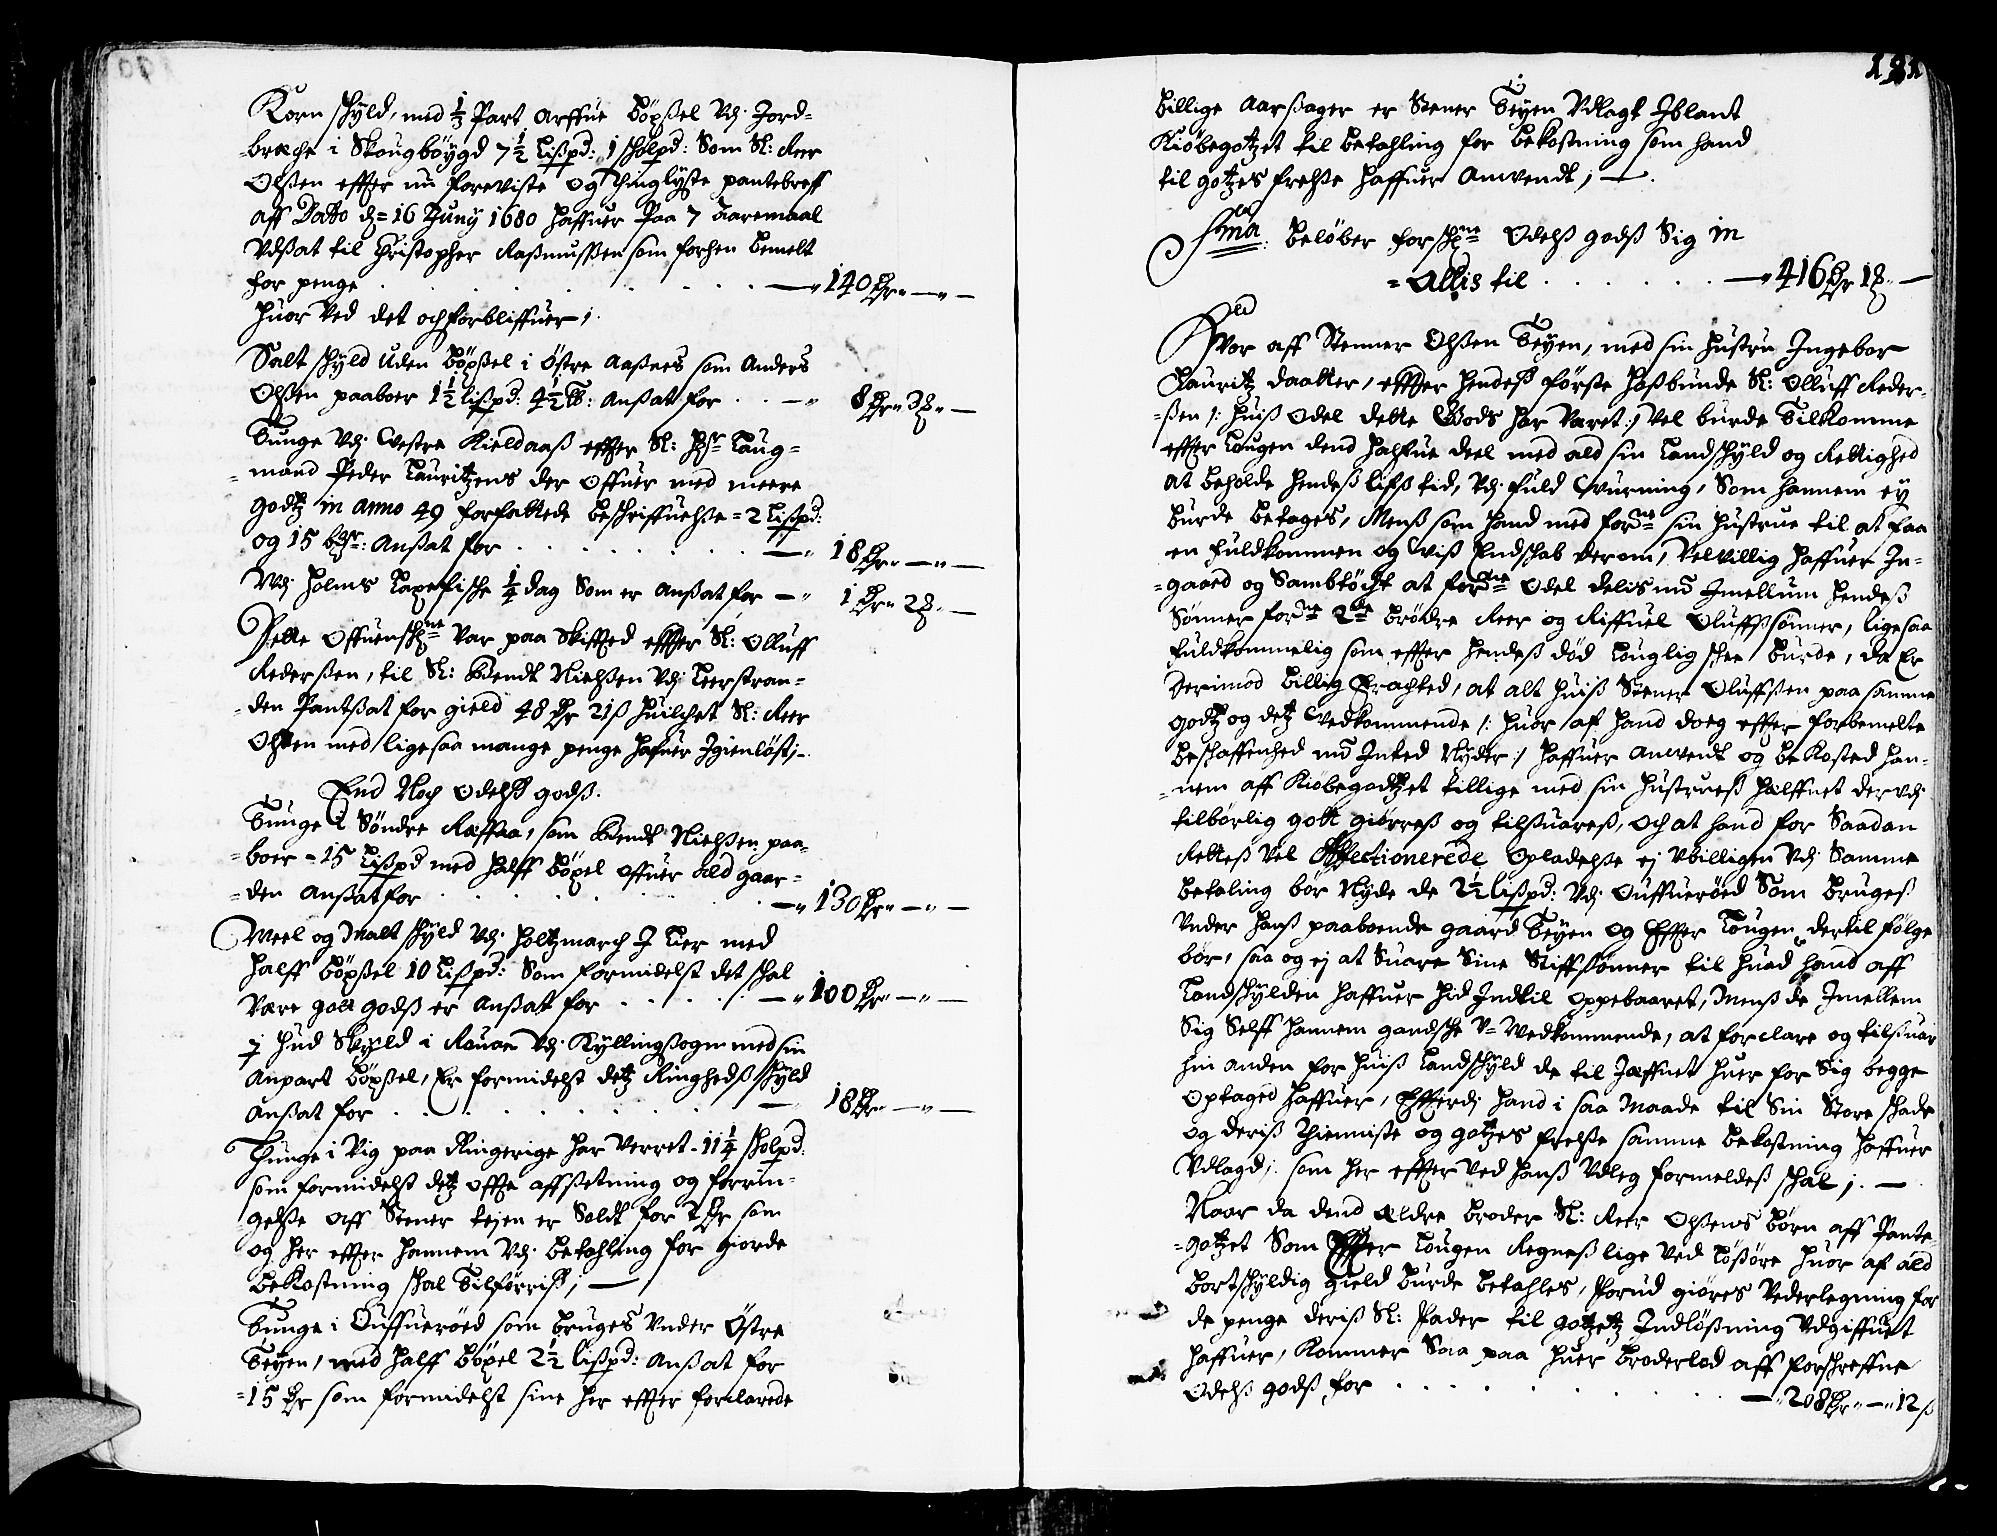 Korn skyld, med 1/3 Part Arffue Böxsel Vdj Jord-
-bræche i Skougböygd 7 1/2 Lißpd: 1 skolpd: Som Sl: Reer
Olßen effter nu foreviste og Thinglyste pantebreff
aff Dato d= 16 Juny 1680 haffuer Paa 7 Aaremaal
Vdsat til Christopher Rasmussen som forhen bemelt
for penge . . . . . 140 Rdr - " -
huor Ved det och forbliffuer;
Salt skyld uden böxsel i östre Aaßnes som Anders
Olßen paaboer 1 1/2 Lißpd: 4 1/2 ℔: Ansat for . . 8 Rdr 3 ß -
Tunge Vdj Westre Kieldaaß effter Sl: Hr Laug-
-mand Peder Lauritzens der offuer med meere
godtz in anno 49 forfattede beskriffuelse = 2 Lißpd:
og 15 : Ansat for . . . . 18 Rdr - " -
Vdj Holms Laxefische 1/4 dag Som er Ansat for - " 1 Rdr 2 -
Dette Offuenschne Var paa Skifted effter Sl: Olluff
Rederßen, til Sl: Bendt Nielßen Vdj Leerstran-
-den Pantsat for gield 48 Rdr 21 ß huilchet Sl: Reer
Olßen med ligesaa mange penge hafuer Igienløst;
End Noch Odelß godß.
Tunge i Söndre Ræffsaa, som Bendt Nielßen paa-
-boer - 15 Lißpd med halff böxel offuer ald gaar-
-den Ansat for . . . . 130 Rdr - " -
Meel og Malt skyld Vdj Holtzmarch I Lier med
halff böxsel 10 Lißpd: Som formidelst det skal
Være gott godß er Ansat for . . . . 100 Rdr - " -
1 Hud Skyld i Rauaa Vdj Kyllingsogn med sin
Anpart böxsel, Er formidelst detz Ringhedß skyld
Ansat for . . . . 18 Rdr - " -
Thunge i Vig paa Ringerige har Verret - 11 1/4 skolpd:
som formidelst detz offte affsetning og forrin-
-gelse aff Stener tejen er Soldt for 7 Rdr som
og her effter hannem Vdj betahling for giorde
bekostning skal Tilförriß; -
Tunge i Ouffueröed som bruges Vnder Östre
Teyen, med halff böxel 2 1/2 Lißpd: Ansat for
=15 Rdr som formidelst sine her effter forclarede
191
billige Aarsager er Stener Teyen Vdlagt Iblant
Kiöbegotzet til betahling for bekostning som hand
til gotzes frelse haffuer Anvendt; -
Sma: belöber forskne Odelß godß Sig in
=Allis til . . . . . 416 Rdr 1 -
Hvor aff Stenner Olßen Teyen, med sin hustru Ingebor
Lauritz daatter, effter hendeß förste hoßbunde Sl: Olluff Reder-
-ßen /: huiß odel dette Godß har Varet :/ Vel burde Tilkomme
effter Lougen dend halfue deel med ald sin Landskyld og Rettighed
at beholde hendeß lifs tid, Vdj fuld Wurning, Som hannem ey
burde betages, Menß som hand med forne sin hustrue til at faa
en fuldkommen og Wiß Endskab derom, Velvillig haffuer In-
-gaaed og Sambtöcht at forne Odel delis nu Imellum hendeß
Sønner forne 2de brödre Reer og Riffuel Oluffssönner, ligesaa
fuldkommelig som effter hendeß död Louglig skee burde, da Er
derimod billig Erachted, at alt huiß Stener Oluffßen paa samme
godtz og detz Wedkommende /: huor af hand doeg effter forbemelte
beskaffenhed nu Inted Nyder :/ haffuer Anvendt og bekosted han-
-nem aff Kiöbegodtzet tillige med sin hustrueß halffuet der vdj
tilbörlig gott giörreß og tilsuareß, Och at hand for Saadan
Retteß Vel Affectionerede Opladelse ej Vbilligen Vdj Samme
betaling bör Nyde de 2 1/2 Lißpd: Vdj Ouffueröed Som bruges
Vnder hanß paaboende gaard Teyen og Effter Lougen dertil fölge
bör, saa og ej at Suare Sine Stiffsönner til huad hand aff
Landskylden haffuer hid Indtil Oppebaaret, Menß de Imellem
Sig Selff hannem gandske V-Wedkommende, at forclare og tilsuar
hin anden for huiß Landskyld de til Jeffnet huer for Sig begge
Optaged haffuer, Effterdj hand i saa Maade til Sin Store skade
og deriß Thienniste og gotzes frelse samme bekostning haffuer
Vdlagd; som her effter Ved hanß Vdleg formeldeß skal; -
Naar da dend Eldre broder Sl: Reer Olßens börn aff Pante-
-gotzet Som Effter Lougen Regneß lige Ved Lößöre huor af ald
bortskyldig gield burde betahles, forud giöres Vederlegning for
de penge deriß Sl: Fader til gotzetz Indlößning Vdgiffuet
haffuer, Kommer Saa paa huer broderlod aff forschreffne
Odelß godß for . . . . 208 Rdr " - " 12 ß